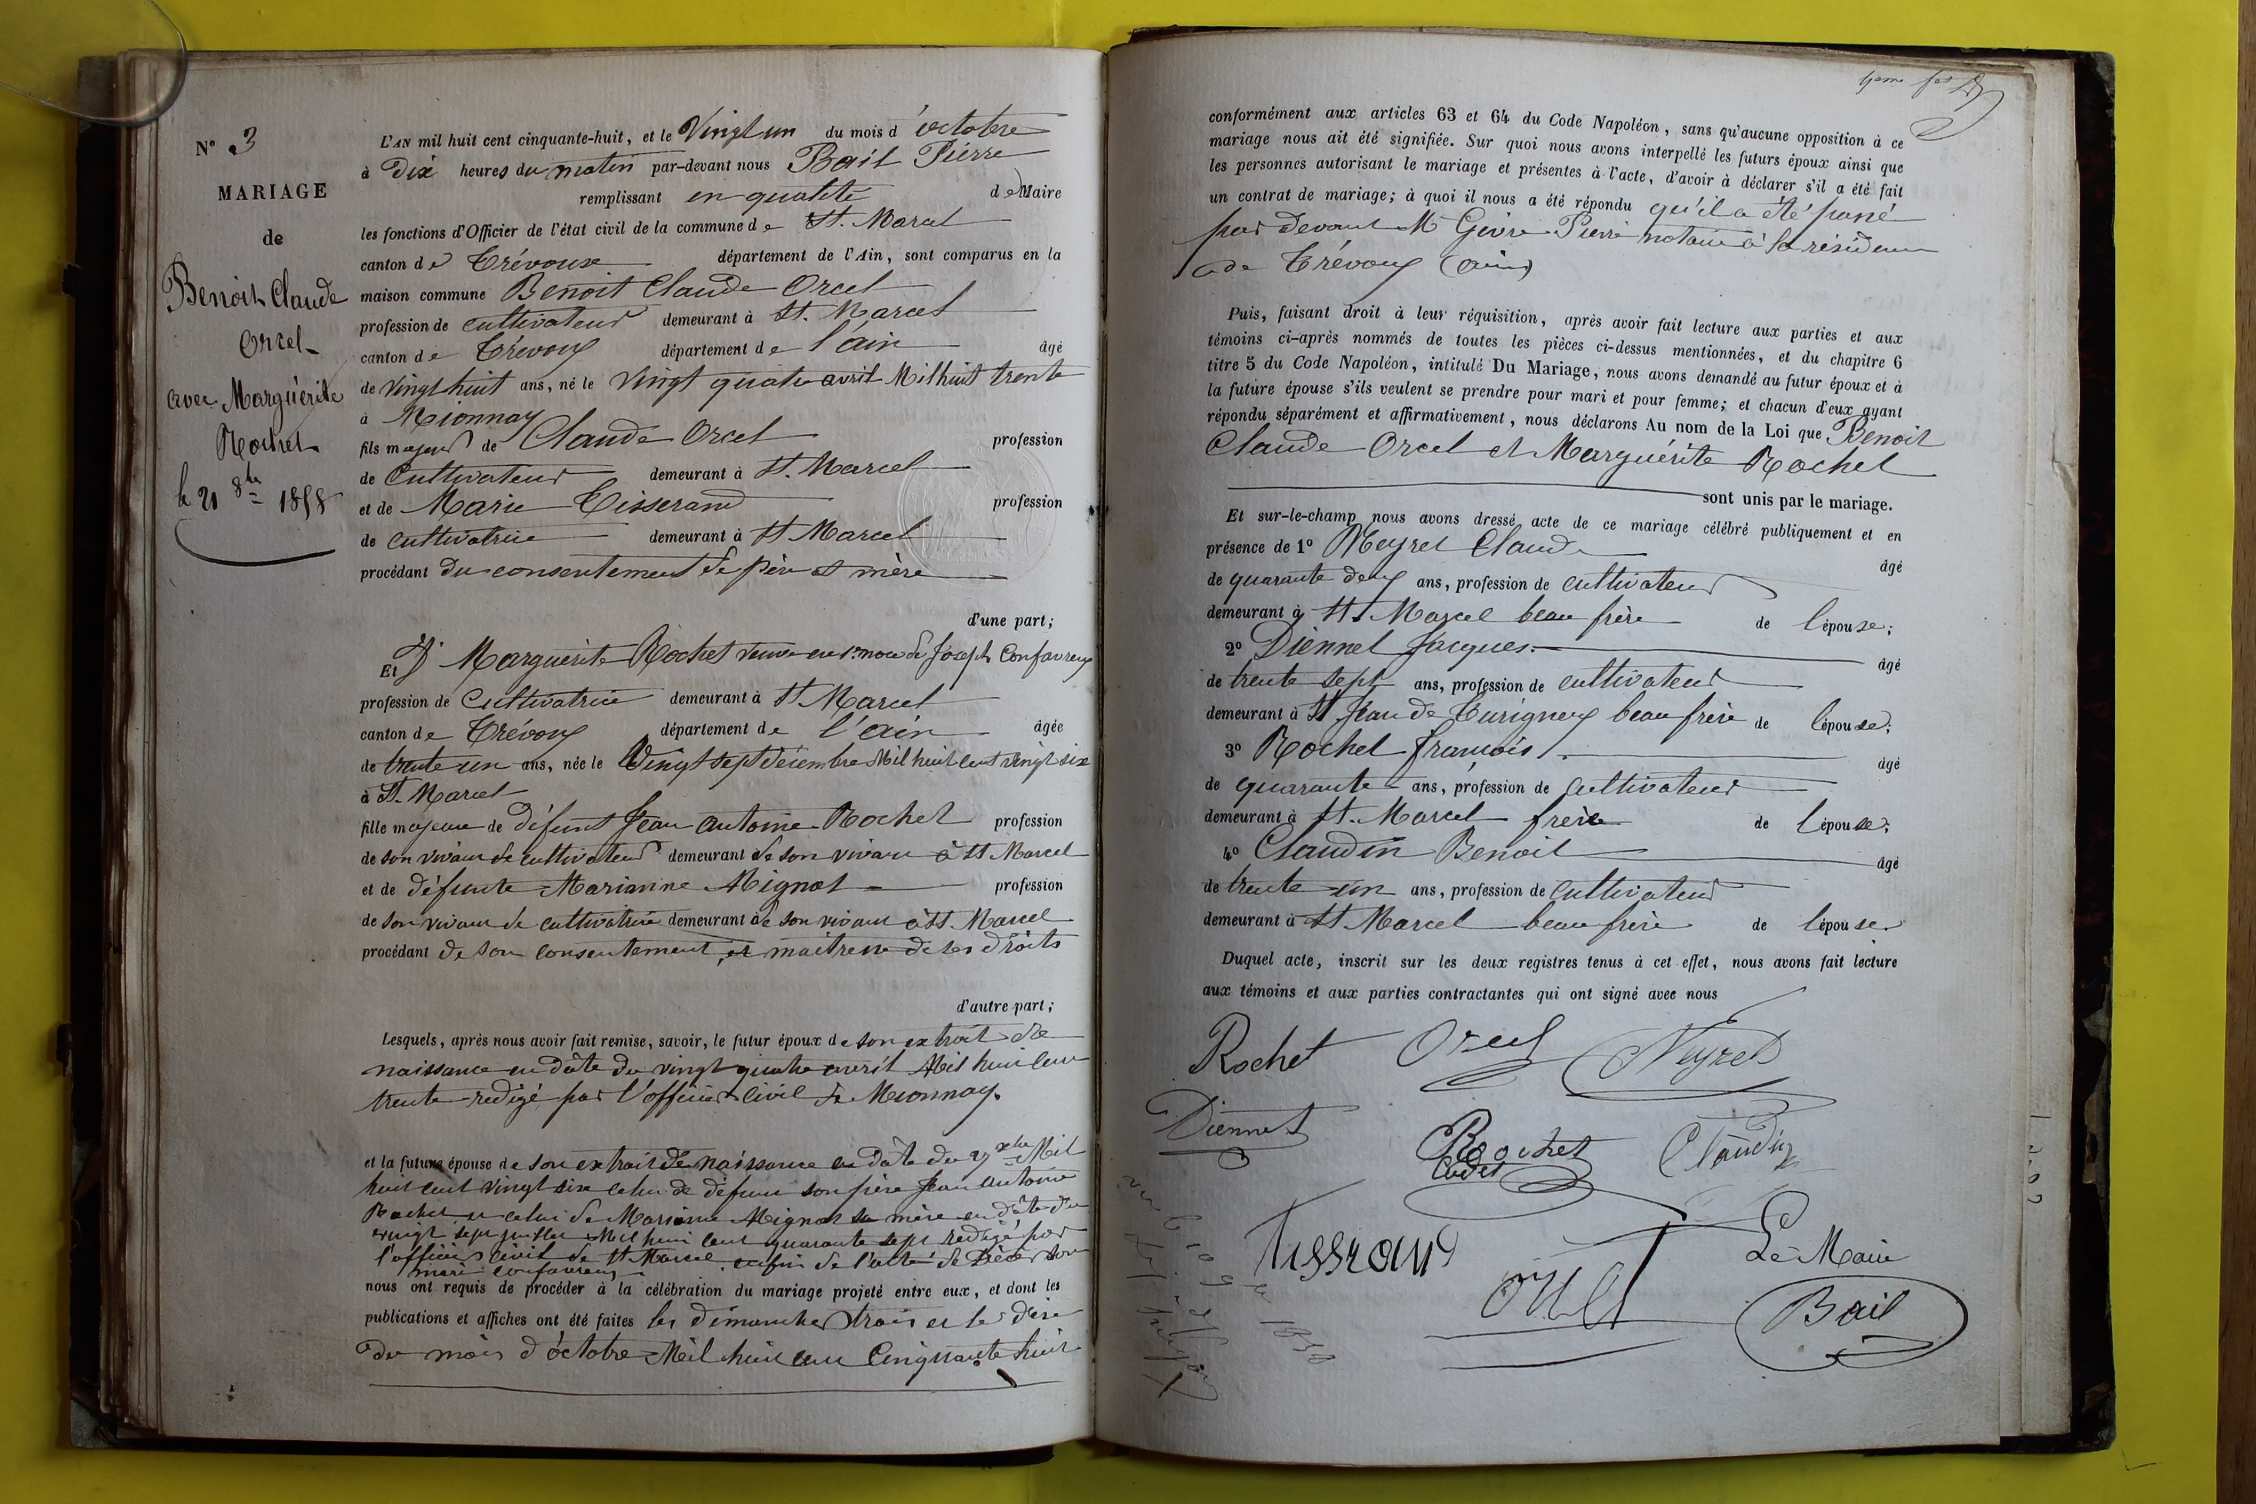 N° 3
MARIAGE
de
Benoit Claude
Orcel
avec Marguérite
Rochet
le 21 8bre 1858
L'AN mil huit cent cinquante-huit, et le Vingt un du mois d'octobre
à dix heures du matin par-devant nous Bail Pierre
remplissant en qualité de Maire
les fonctions d'Officier de l'état civil de la commune de St. Marcel
canton de Trévoux département de l'Ain, sont comparus en la
maison commune Benoit Claude Orcel
profession de cultivateur demeurant à St. Marcel
canton de Trévoux département de l'ain âgé
de vingt huit ans, né le vingt quatre avril Mil huit trente
à Mionnay
fils majeur de Claude Orcel profession
de Cultivateur demeurant à St. Marcel
et de Marie Tisserand profession
de cultivatrice demeurant à St Marcel
procédant du consentement de père et mère
d'une part;
Et Marguerite Rochet veuve en 1res noces de Joseph Confavreux
profession de Cultivatrice demeurant à St Marcel
canton de Trévoux département de l'ain âgée
de trente un ans, née le Vingt sept décembre Mil huit cent vingt six
à St. Marcel
fille majeure de défunt Jean antoine Rochet profession
de son vivant de cultivateur demeurant de son vivant à St Marcel
et de défunte Marianne Mignot profession
de son vivant de cultivatrice demeurant à de son vivant à St. Marcel
procédant de son consentement et maitresse de ses droits
d'autre part;
Lesquels, après nous avoir fait remise, savoir, le futur époux de son extrait de
naissance en dâte du vingt quatre avril Mil huit cent
trente redigé par l'officier civil de Mionnay.
et la future épouse de son extrait de naissance en dâte du 27 xbre Mil
huit cent vingt six celui de défunt son père Jean antoine
Rochet et celui de Marianne Mignot sa mère en dâte du
vingt sept juillet Mil huit cent quarante sept redigé par
l'officier civil de St Marcel enfin de l'acte de Décès son
mari confavreux
nous ont requis de procéder à la célébration du mariage projeté entre eux, et dont les
publications et affiches ont été faites les dimanches trois et le dix
du mois d'octobre Mil huit cent Cinquante huit
conformément aux articles 63 et 64 du Code Napoléon, sans qu'aucune opposition à ce
mariage nous ait été signifiée. Sur quoi nous avons interpellé les futurs époux ainsi que
les personnes autorisant le mariage et présentes à l'acte, d'avoir à déclarer s'il a été fait
un contrat de mariage; à quoi il nous a été répondu qu'il a été passé
par devant Me Givre Pierre notaire à la résidence
de Trévoux (ain)
Puis, faisant droit à leur réquisition, après avoir fait lecture aux parties et aux
témoins ci-après nommés de toutes les pièces ci-dessus mentionnées, et du chapitre 6
titre 5 du Code Napoléon, intitulé Du Mariage, nous avons demandé au futur époux et à
la future épouse s'ils veulent se prendre pour mari et pour femme; et chacun d'eux ayant
répondu séparément et affirmativement, nous déclarons Au nom de la Loi que Benoit
Claude Orcel et Marguérite Rochet
sont unis par le mariage.
Et sur-le-champ nous avons dressé acte de ce mariage célébré publiquement et en
présence de 1° Neyret Claude âgé
de quarante deux ans, profession de cultivateur
demeurant à St Marcel beau frère de l'épouse;
2° Diennet Jacques âgé
de trente sept ans, profession de cultivateur
demeurant à St Jean de Turigneux beau frère de l'épouse;
3° Rochet françois âgé
de quarante ans, profession de cultivateur
demeurant à St. Marcel frère de l'épouse;
4° Claudin Benoit âgé
de trente un ans, profession de Cultivateur
demeurant à St Marcel beau frère de l'épouse
Duquel acte, inscrit sur les deux registres tenus à cet effet, nous avons fait lecture
aux témoins et aux parties contractantes qui ont signé avec nous
Rochet Orcel Neyret
Diennet Rochet Claudin
Cadet
Tissrand Le Maire
Orcel Bail